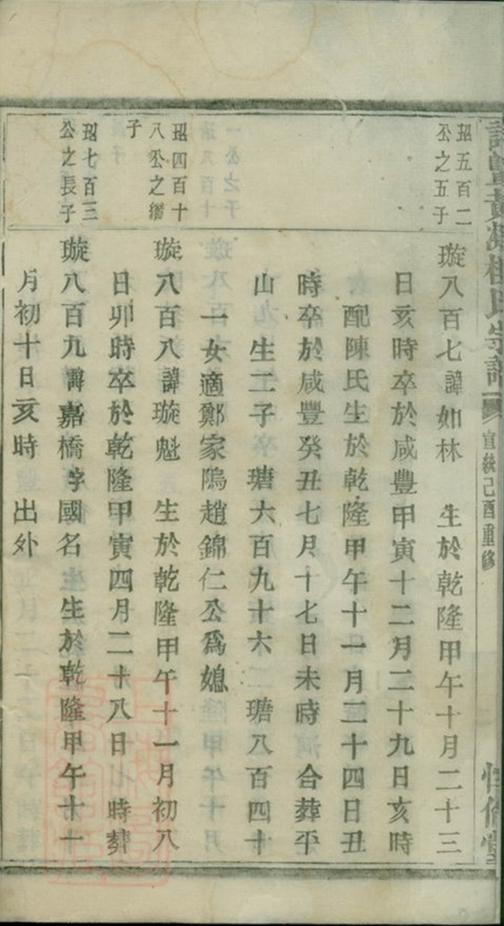 宗譜
宣統己酉重修
珆五百二
公之五子
璇八百七諱如林 生於乾隆甲午十月二十三
日亥時卒於咸豐甲寅十二月二十九日亥時
配陳氏生於乾隆甲午十一月二十四日丑
時卒於咸豐癸丑七月十七日未時 合葬平
山 生二子 瑭六百九十六 瑭八百四十
一女適鄭家隖趙錦仁公為媳
珆四百十
八公之繼
子
璇八百八諱璇魁 生於乾隆甲午十一月初八
日卯時卒於乾隆甲寅四月二十八日 時葬
珆七百三
公之長子
璇八百九諱嘉橋字國名生於乾隆甲午十
月初十日亥時 出外